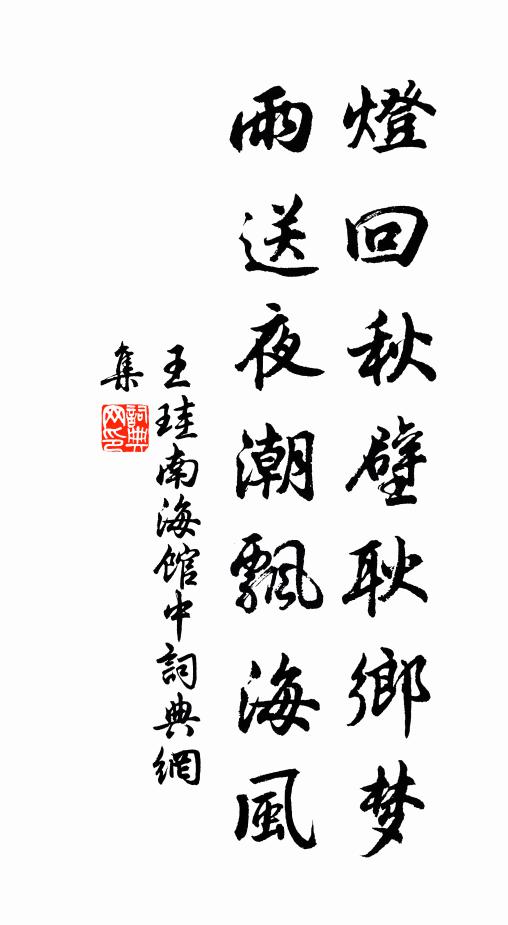 燈回秋壁耿鄉梦
雨送夜潮飄海風
王珪南海館中詞典網
集
詞典
网印